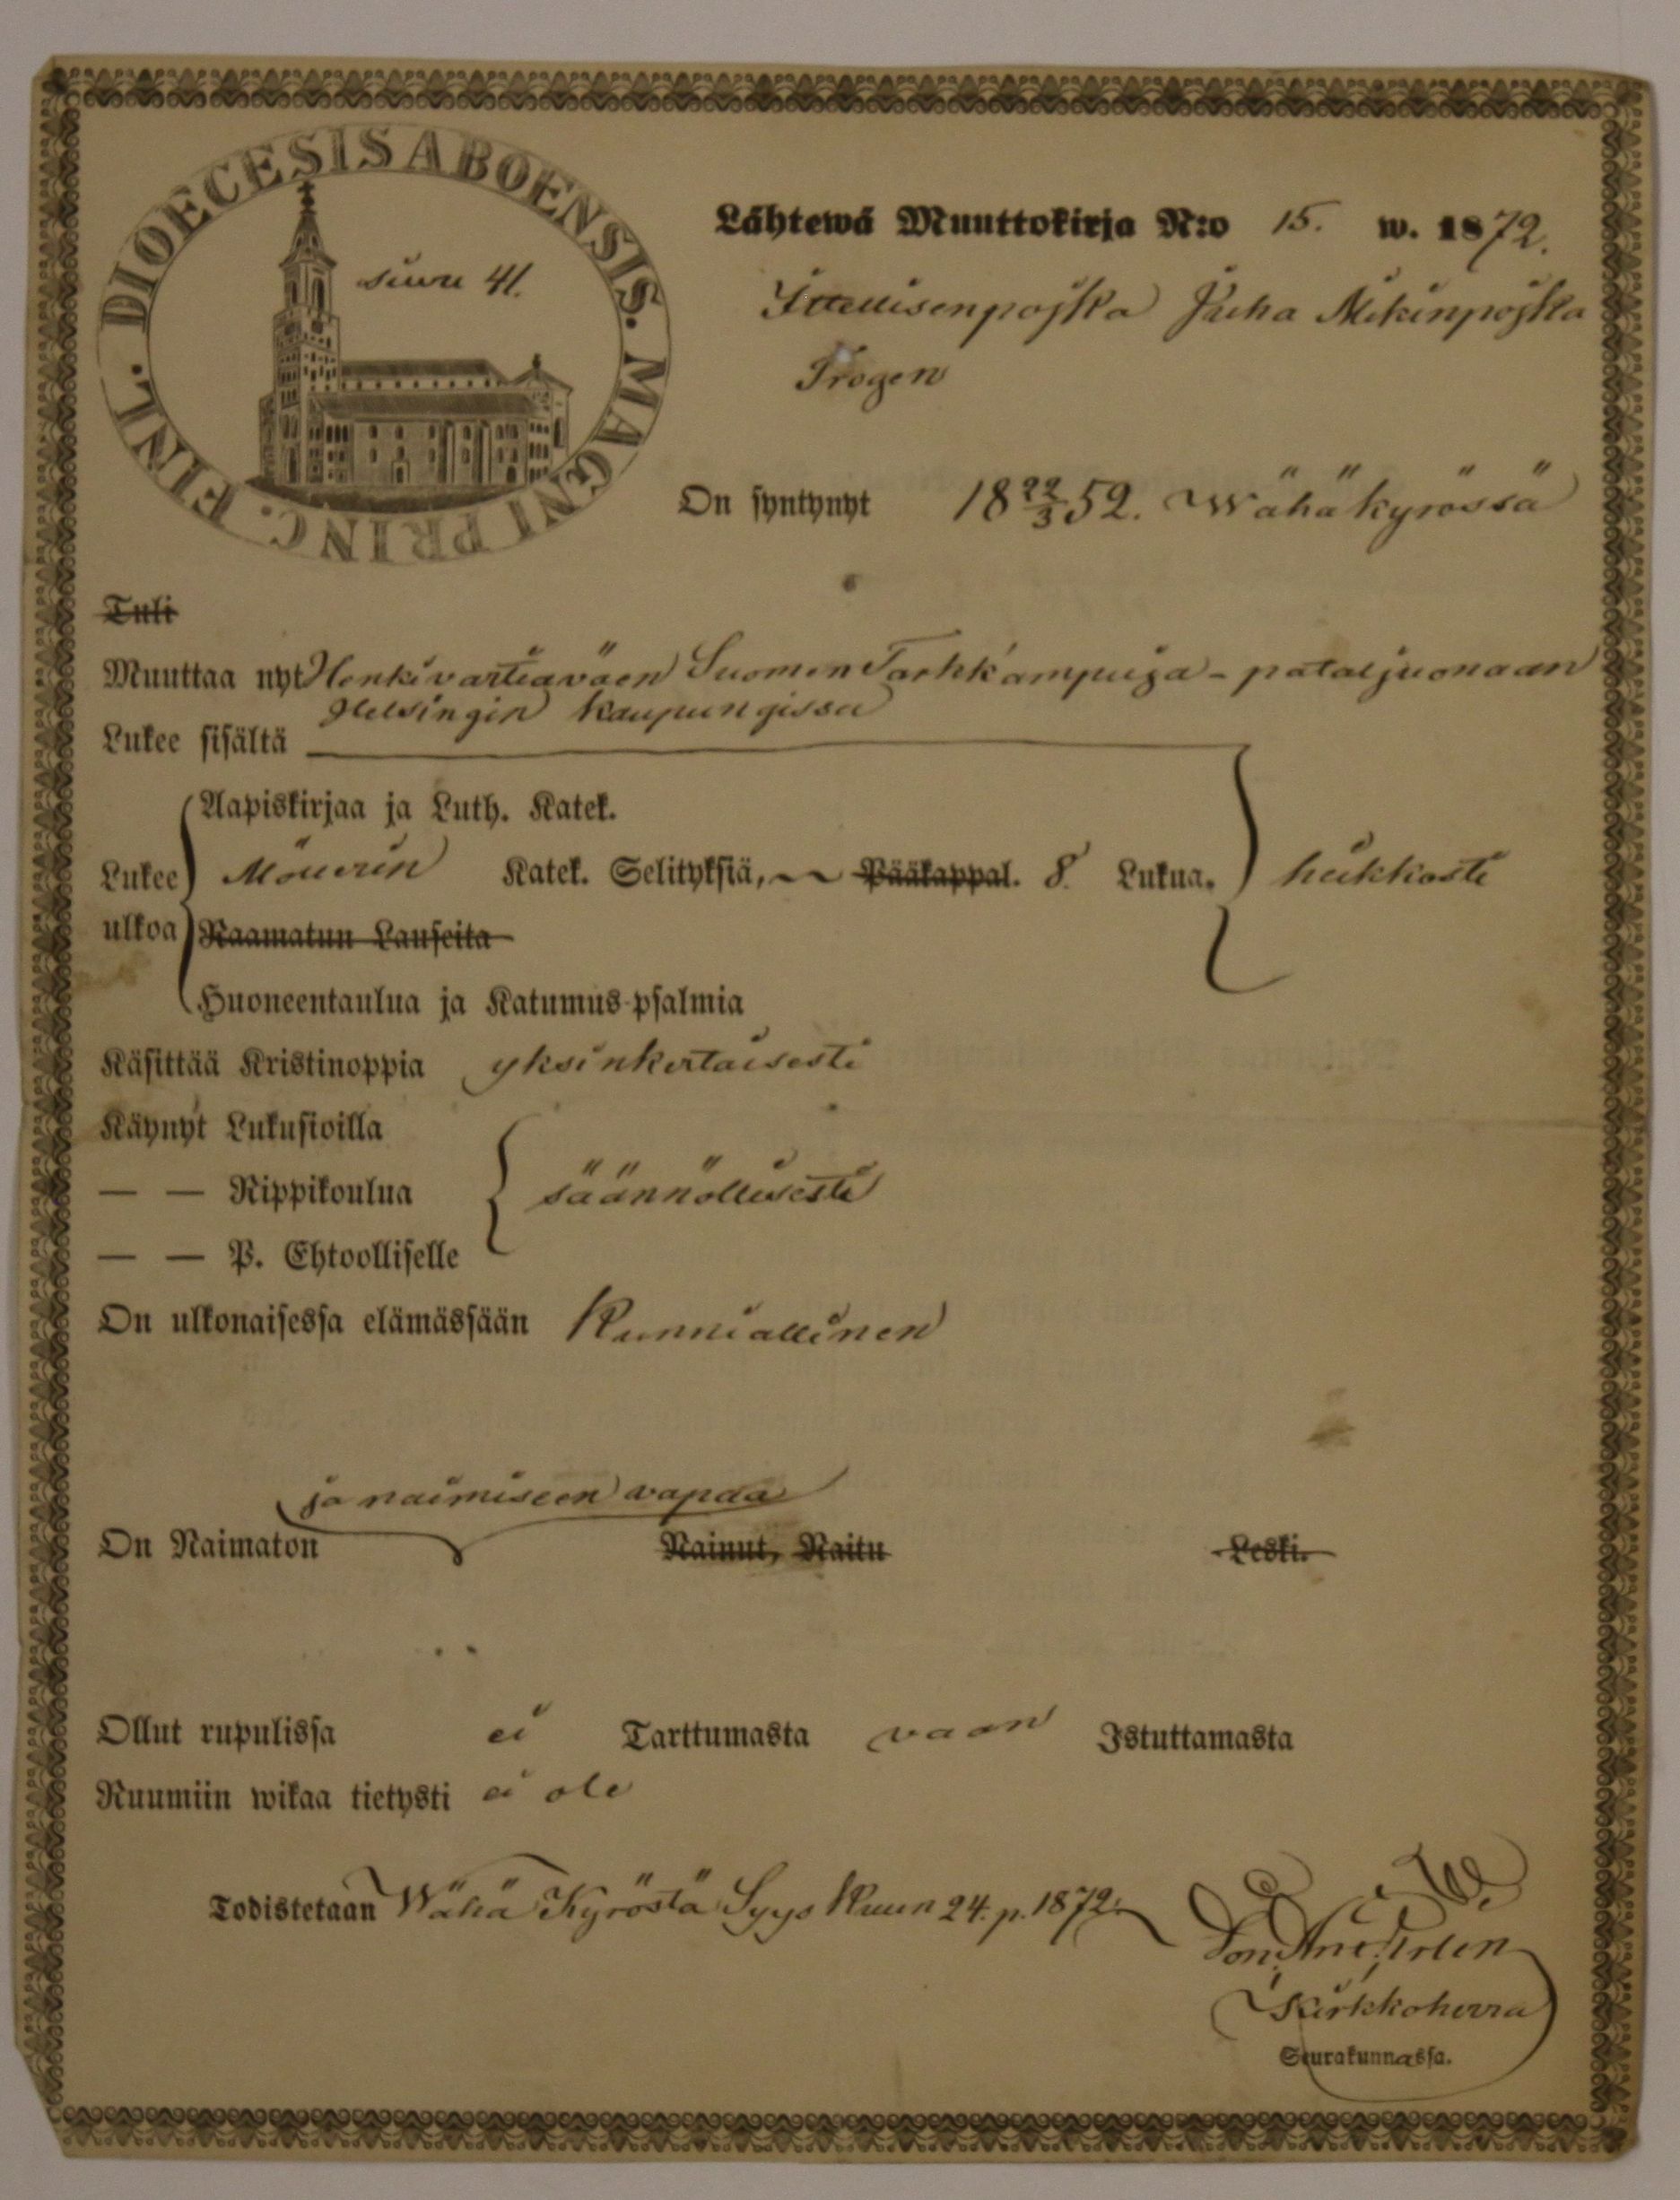 DIOECESIS ABOENSIS. MAGNI PRINC. FINL.
siwu 41.
Lähtewä Muuttokirja N:o 15. w. 1872.
Itsellisenpojka Juha Mikinpojka
Trogen
On syntynyt 18 22/3 52. Wähäkyrössä
Tuli
Muuttaa nyt Henkivartiaväen Suomen Tarkk'ampuja-pataljuonaan
Helsingin kaupungissa
Lukee sisältä
Aapiskirjaa ja Luth. Katek.
Lukee Katek. Selityksiä, Pääkappal. 8. Lukua. heikkosti
ulkoa Raamatun Lauseita
Huoneentaulua ja Katumus-psalmia
Käsittää Kristinoppia yksinkertaisesti
Käynyt Lukusioilla
— — Rippikoulua säännöllisesti
— — P. Ehtoolliselle
On ulkonaisessa elämässään Kunniallinen
ja naimiseen vapaa
On Naimaton Nainut, Naitu Leski.
Ollut rupulissa ei Tarttumasta vaan Istuttamasta
Ruumiin wikaa tietysti ei ole
Todistetaan Wähä Kyröstä Syys Kuun 24. p. 1872.
Kirkkoherra
Seurakunnassa.